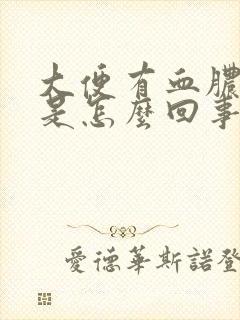 大便有血膿
是怎麼回事
愛德華斯諾登